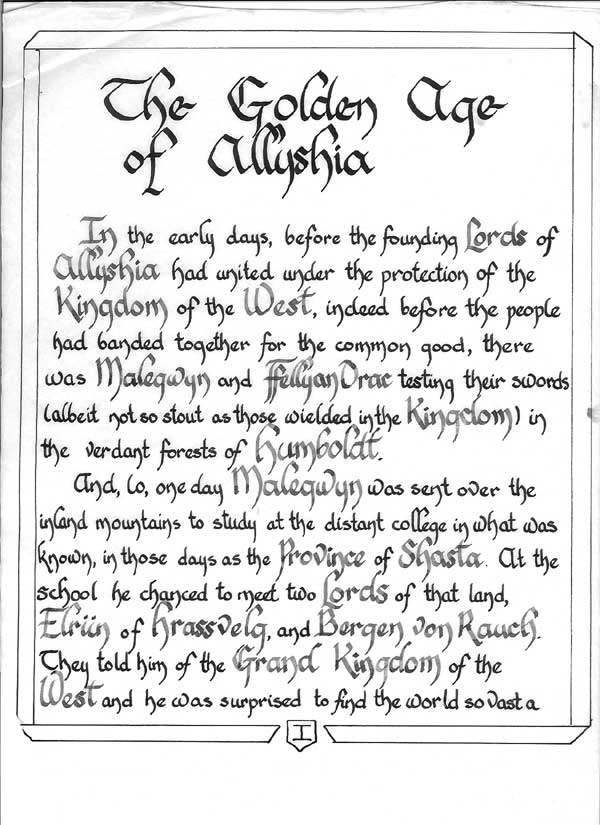 The Golden Age
of Allyshia
In the early days, before the founding Lords of
Allyshia had united under the protection of the
Kingdom of the West, indeed before the people
had banded together for the common good, there
was Malegwyn and Ffellyan Drac testing their swords
(albeit not so stout as those wielded in the Kingdom) in
the verdant forests of Humboldt.
And, lo, one day Malegwyn was sent over the
inland mountains to study at the distant college in what was
known, in those days as the Province of Shasta. At the
school he chanced to meet two Lords of that land,
Elriin of Hrassvelg, and Bergen von Rauch.
They told him of the Grand Kingdom of the
West and he was surprised to find the world so vast a
I